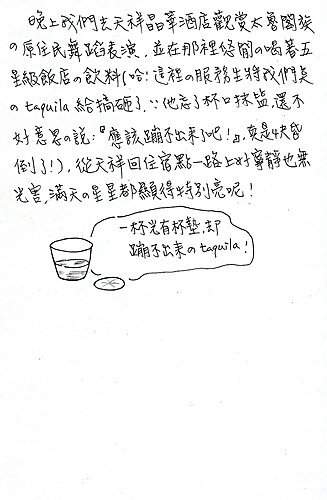 晚上我們去天祥晶華酒店觀賞太魯閣族
の原住民舞蹈表演，並在那裡悠閒の喝著五
星級飯店の飲料(哈！這裡の服務生將我們點
の taquila 給搞砸了，∵他忘了杯口抹鹽，還不
好意思の說：『應該蹦不出來了吧！』，真是快昏
倒了！)，從天祥回住宿點一路上好寧靜也無
光害，滿天の星星都顯得特別亮呢！
一杯光有杯墊，却
蹦不出來の taquila！